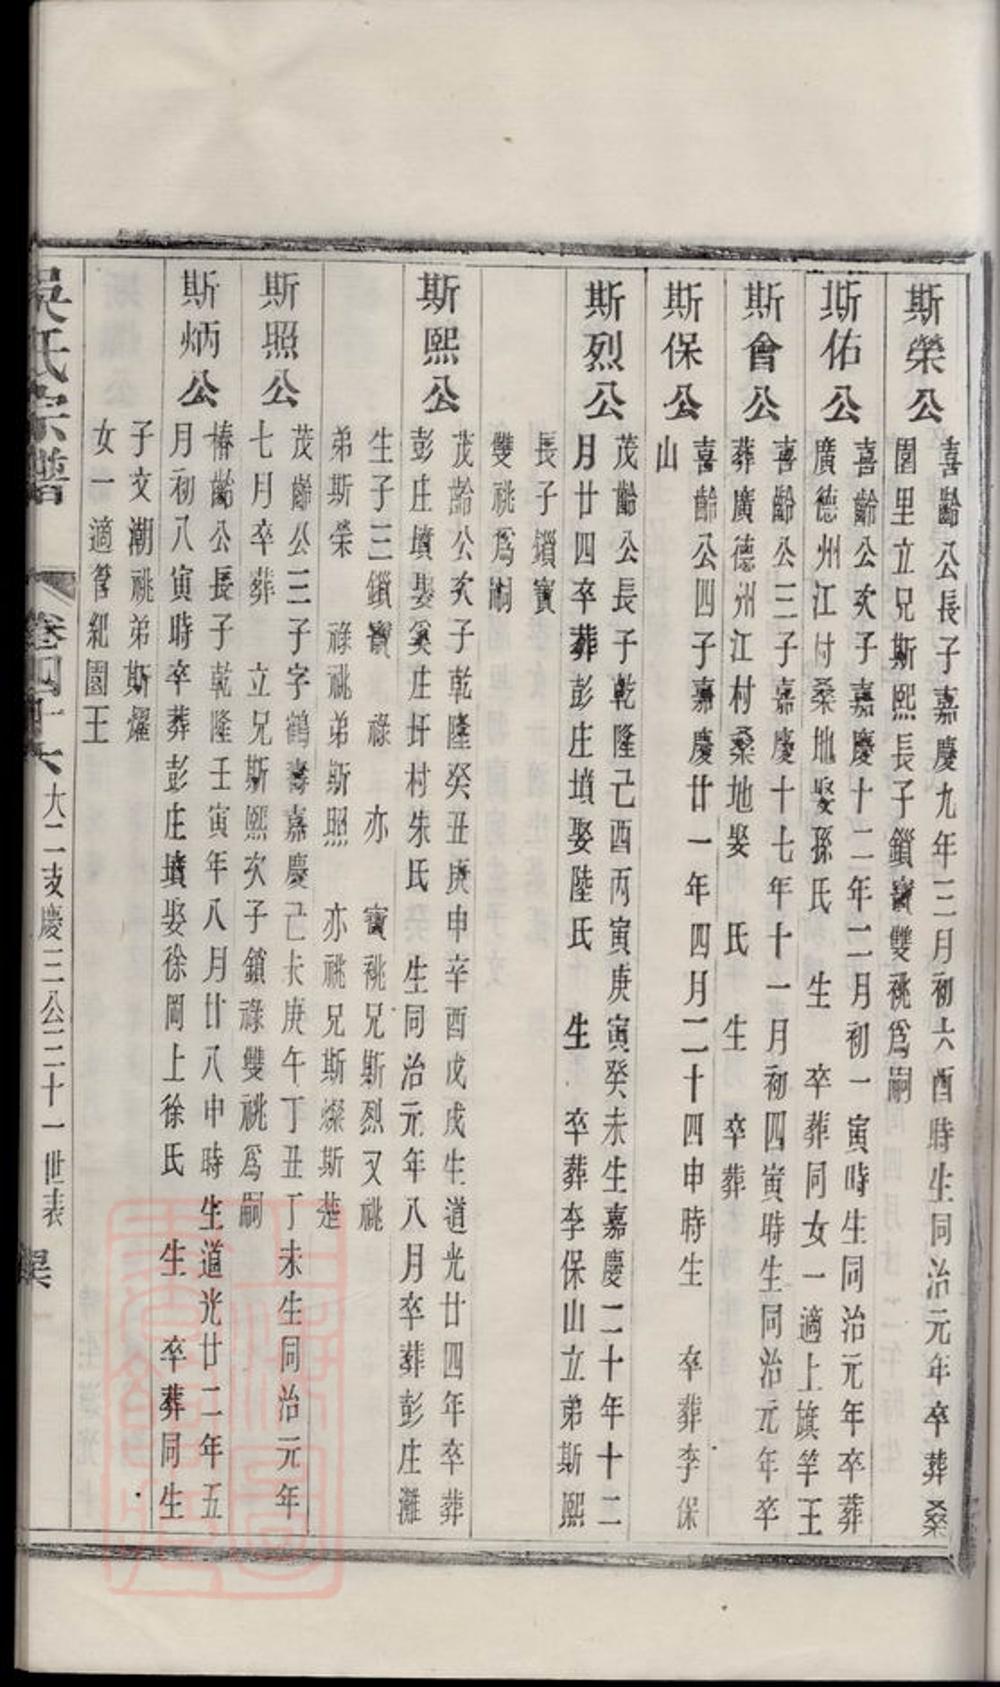 斯榮公
喜齡公長子嘉慶九年三月初六酉時生同治元年卒葬桑
園里立兄斯熙長子鎖寶雙祧爲嗣
斯佑公
喜齡公次子嘉慶十二年二月初一寅時生同治元年卒葬
廣德州江村桑地娶孫氏 生 卒葬同女一適上旗竿王
斯會公
喜齡公三子嘉慶十七年十一月初四寅時生同治元年卒
葬廣德州江村桑地娶 氏 生 卒葬
斯保公
喜齡公四子嘉慶廿一年四月二十四申時生 卒葬李保
山
斯烈公
茂齡公長子乾隆己酉丙寅庚寅癸未生嘉慶二十年十二
月廿四卒葬彭庄墳娶陸氏 生 卒葬李保山立弟斯熙
長子鎖寶
雙祧爲嗣
斯熙公
茂齡公次子乾隆癸丑庚申辛酉戊戌生道光廿四年卒葬
彭庄墳娶奚庄圩村朱氏 生同治元年八月卒葬彭庄灘
生子三鎖寶 祿 亦 寶祧兄斯烈又祧
弟斯榮 祿祧弟斯照 亦祧兄斯燦斯楚
斯照公
茂齡公三子字鶴壽嘉慶己未庚午丁丑丁未生同治元年
七月卒葬 立兄斯熙次子鎖祿雙祧爲嗣
斯炳公
椿齡公長子乾隆壬寅年八月廿八申時生道光廿二年五
月初八寅時卒葬彭庄墳娶徐岡上徐氏 生 卒葬同生
子文潮祧弟斯燿
女一適管紀園王
吳氏宗譜 卷四十六 大二支慶三公三十一世表